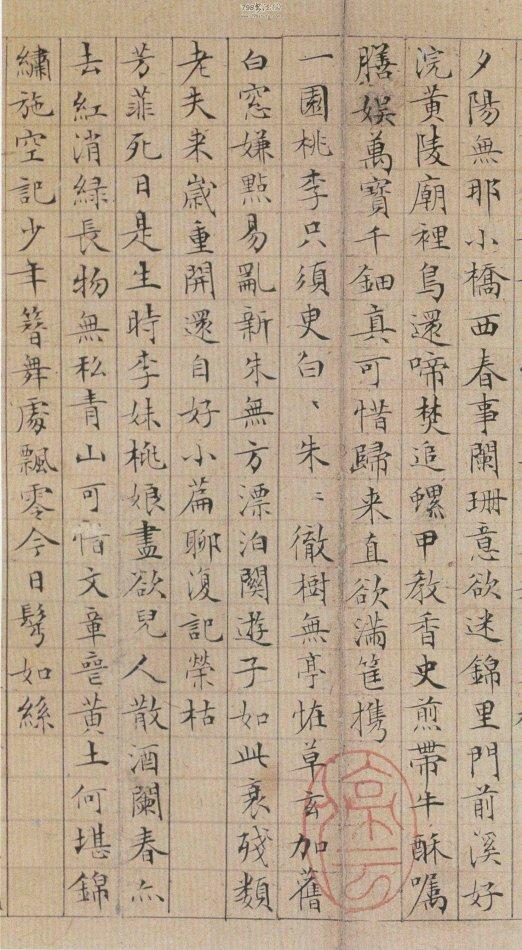 夕陽無那小橋西春事闌珊意欲迷錦里門前溪好
浣黃陵廟裡鳥還啼焚追螺甲教香史煎帶牛酥囑
膳娛萬寶千鈿真可惜歸来直欲滿筐攜
一園桃李只須臾白、朱、徹樹無亭怪草玄加舊
白窓嫌點易亂新朱無方漂泊關遊子如此衰殘類
老夫来歲重開還自好小篇聊復記榮枯
芳菲死日是生時李妹桃娘盡欲兒人散酒闌春亦
去紅消綠長物無私青山可惜文章喪黃土何堪錦
繡施空記少年簪舞處飄零今日鬂如絲